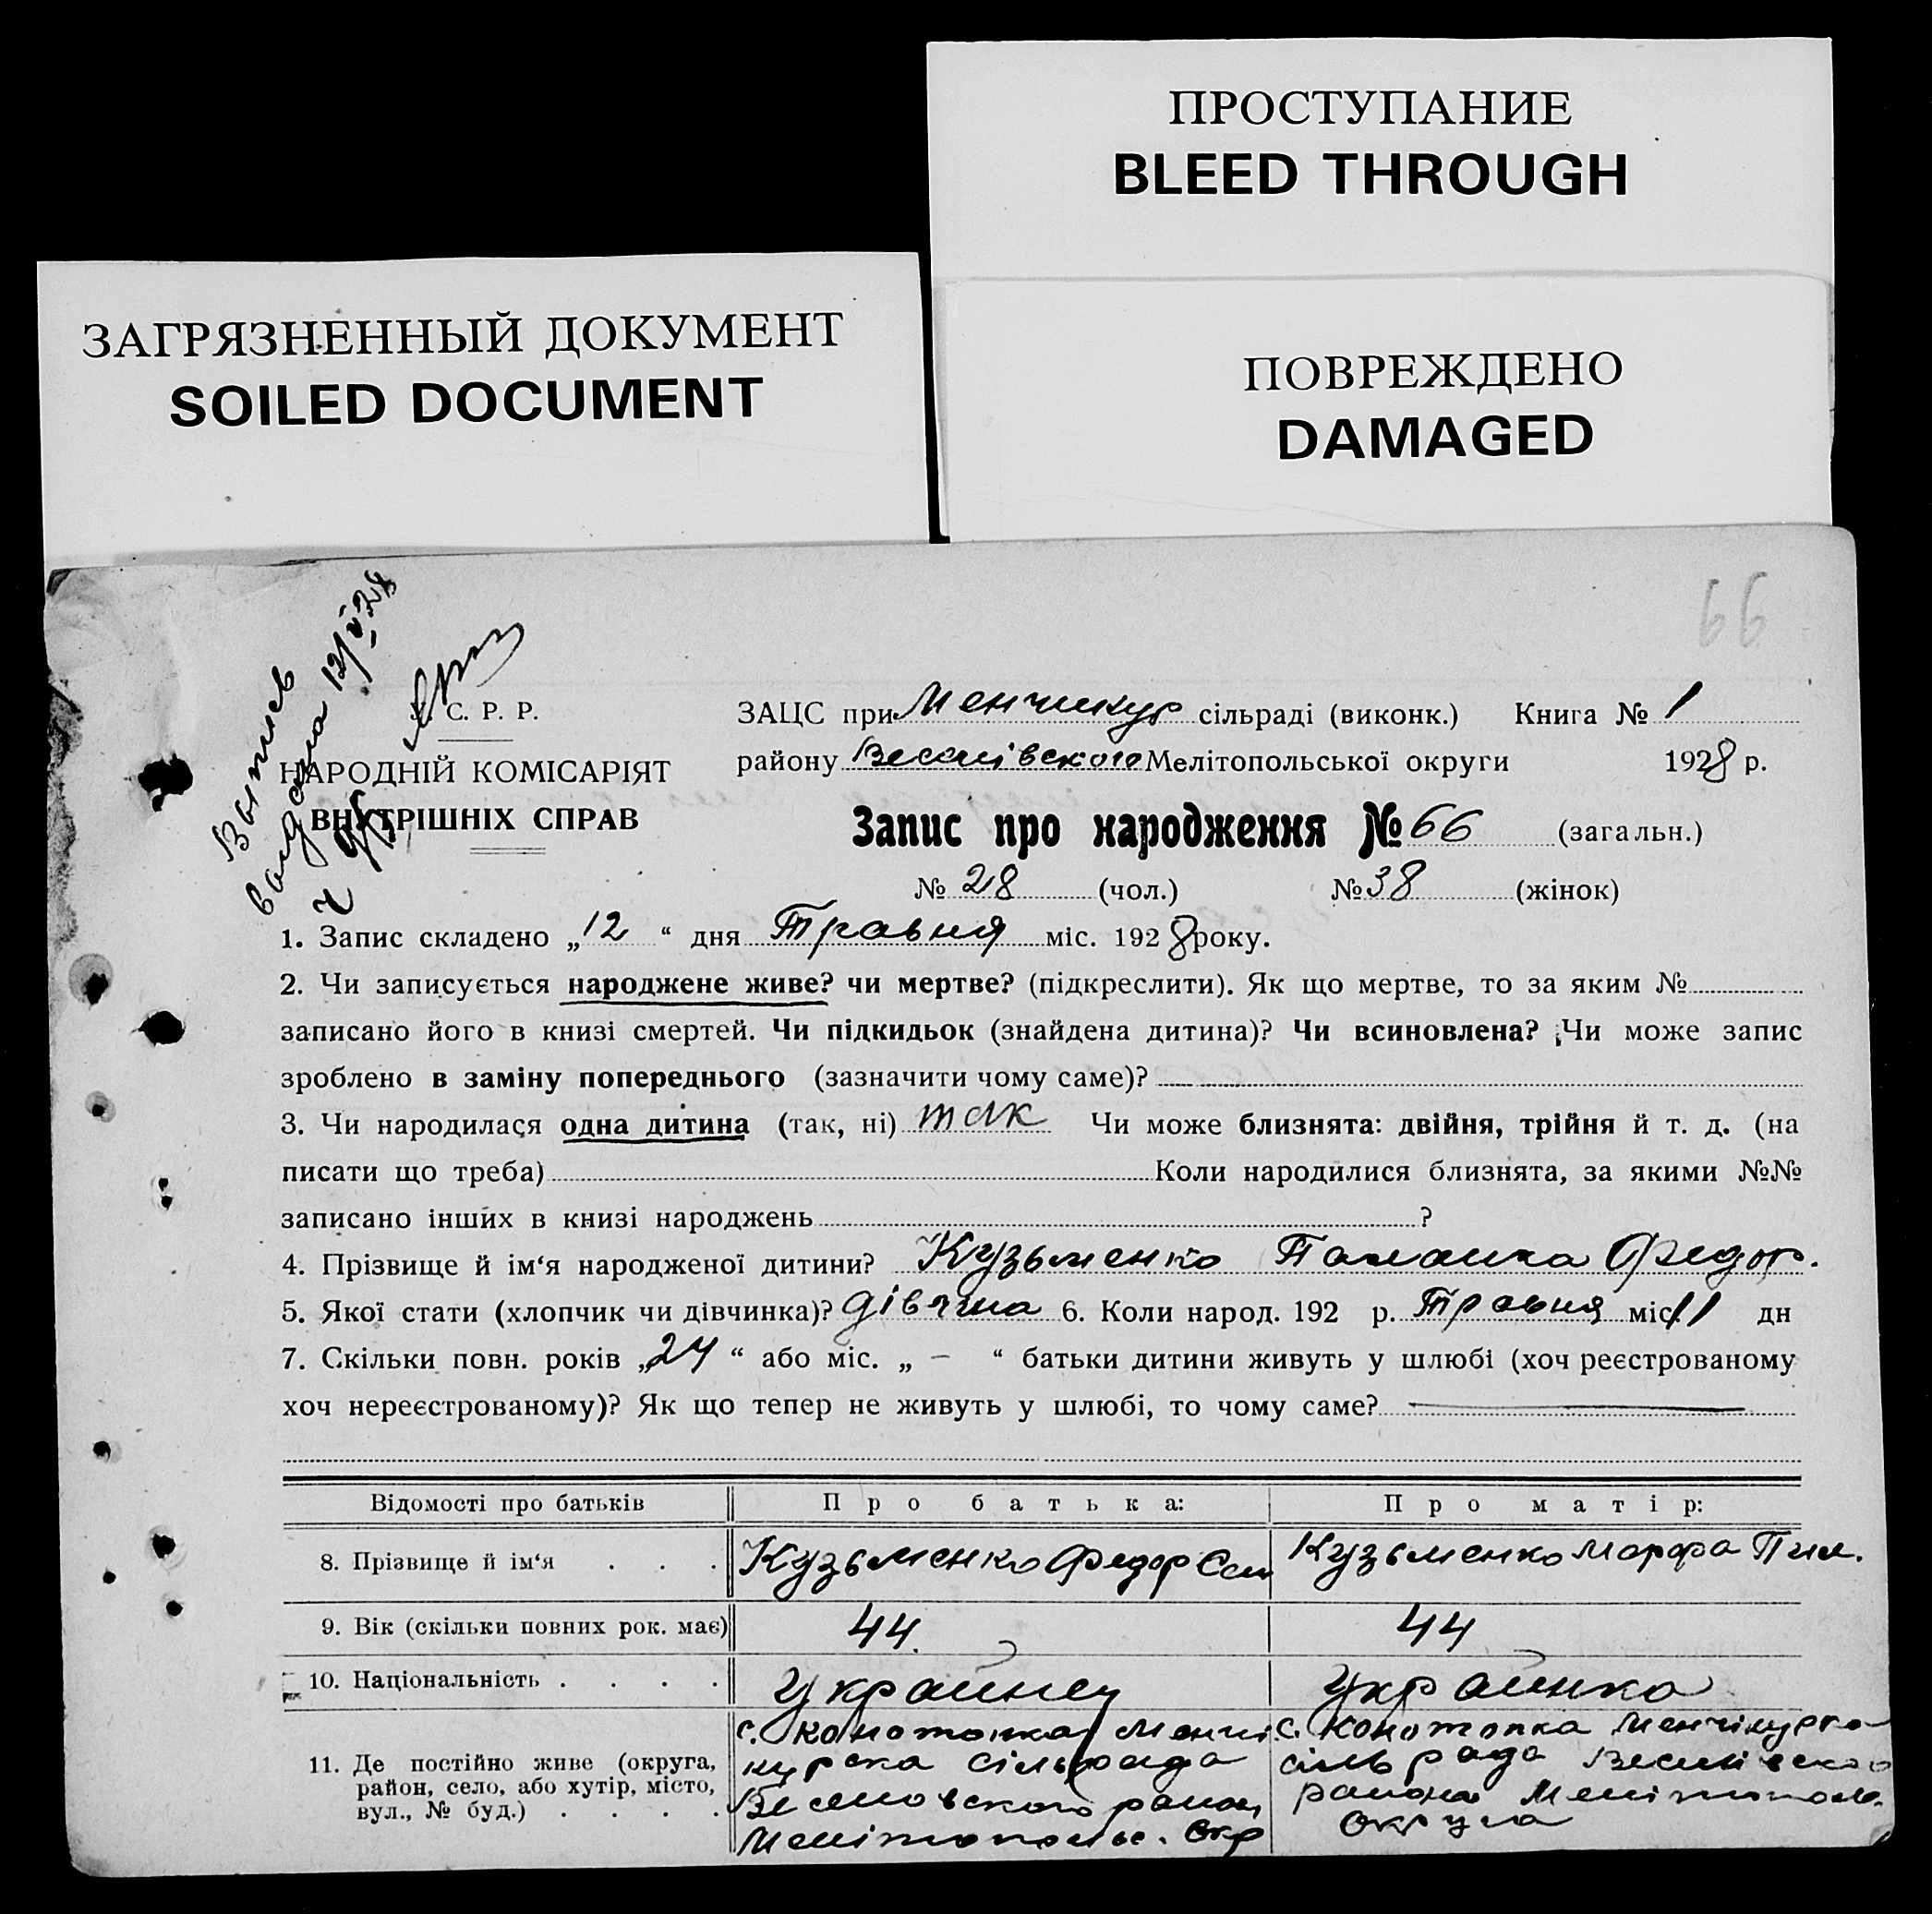 ПРОСТУПАНИЕ
BLEED THROUGH
ЗАГРЯЗНЕННЫЙ ДОКУМЕНТ
SOILED DOCUMENT
ПОВРЕЖДЕНО
DAMAGED
66
Выпись
выдана 12/V-28
С. Р. Р.
НАРОДНІЙ КОМІСАРІЯТ
ВНУТРІШНІХ СПРАВ
ЗАЦС при Менчикур сільраді (виконк.) Книга № 1
району Веселівского Мелітопольської округи 1928 р.
Запис про народження № 66 (загальн.)
№ 28 (чол.) № 38 (жінок)
1. Запис складено „12“ дня Травня міс. 1928 року.
2. Чи записується народжене живе? чи мертве? (підкреслити). Як що мертве, то за яким №
записано його в книзі смертей. Чи підкидьок (знайдена дитина)? Чи всиновлена? Чи може запис
зроблено в заміну попереднього (зазначити чому саме)?
3. Чи народилася одна дитина (так, ні) так Чи може близнята: двійня, трійня й т. д. (на
писати що треба) Коли народилися близнята, за якими №№
записано інших в книзі народжень ?
4. Прізвище й ім‘я народженої дитини? Кузьменко Палашка Федор.
5. Якої стати (хлопчик чи дівчинка)? дівчина 6. Коли народ. 192 р. Травня міс. 11 дн
7. Скільки повн. років „24“ або міс. „ – “ батьки дитини живуть у шлюбі (хоч реєстрованому
хоч нереєстрованому)? Як що тепер не живуть у шлюбі, то чому саме?
Відомості про батьків Про батька: Про матір:
8. Прізвище й ім‘я . . . Кузьменко Федор Сем Кузьменко Марфа Пил.
9. Вік (скільки повних рок. має) 44. 44
10. Національність . . . . Украйнец Украйнка
11. Де постійно живе (округа,
район, село, або хутір, місто,
вул., № буд.) . . . .
с. Конотопка Менчі
курска сільрада
Веселовского район
Мелітопольс. Окр
с. Конотопка Менчікурска
сільрада Веселівского
района Мелітополь.
Округа